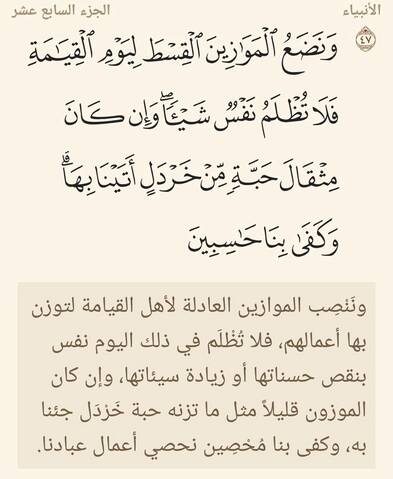 الأنبياء الجزء السابع عشر
٤٧ وَنَضَعُ ٱلْمَوَٰزِينَ ٱلْقِسْطَ لِيَوْمِ ٱلْقِيَٰمَةِ
فَلَا تُظْلَمُ نَفْسٌ شَيْـًٔا ۖ وَإِن كَانَ
مِثْقَالَ حَبَّةٍ مِّنْ خَرْدَلٍ أَتَيْنَا بِهَا ۗ
وَكَفَىٰ بِنَا حَٰسِبِينَ
ونَنْصِب الموازين العادلة لأهل القيامة لتوزن
بها أعمالهم، فلا تُظْلَم في ذلك اليوم نفس
بنقص حسناتها أو زيادة سيئاتها، وإن كان
الموزون قليلاً مثل ما تزنه حبة خَرْدَل جئنا
به، وكفى بنا مُحْصِين نحصي أعمال عبادنا.